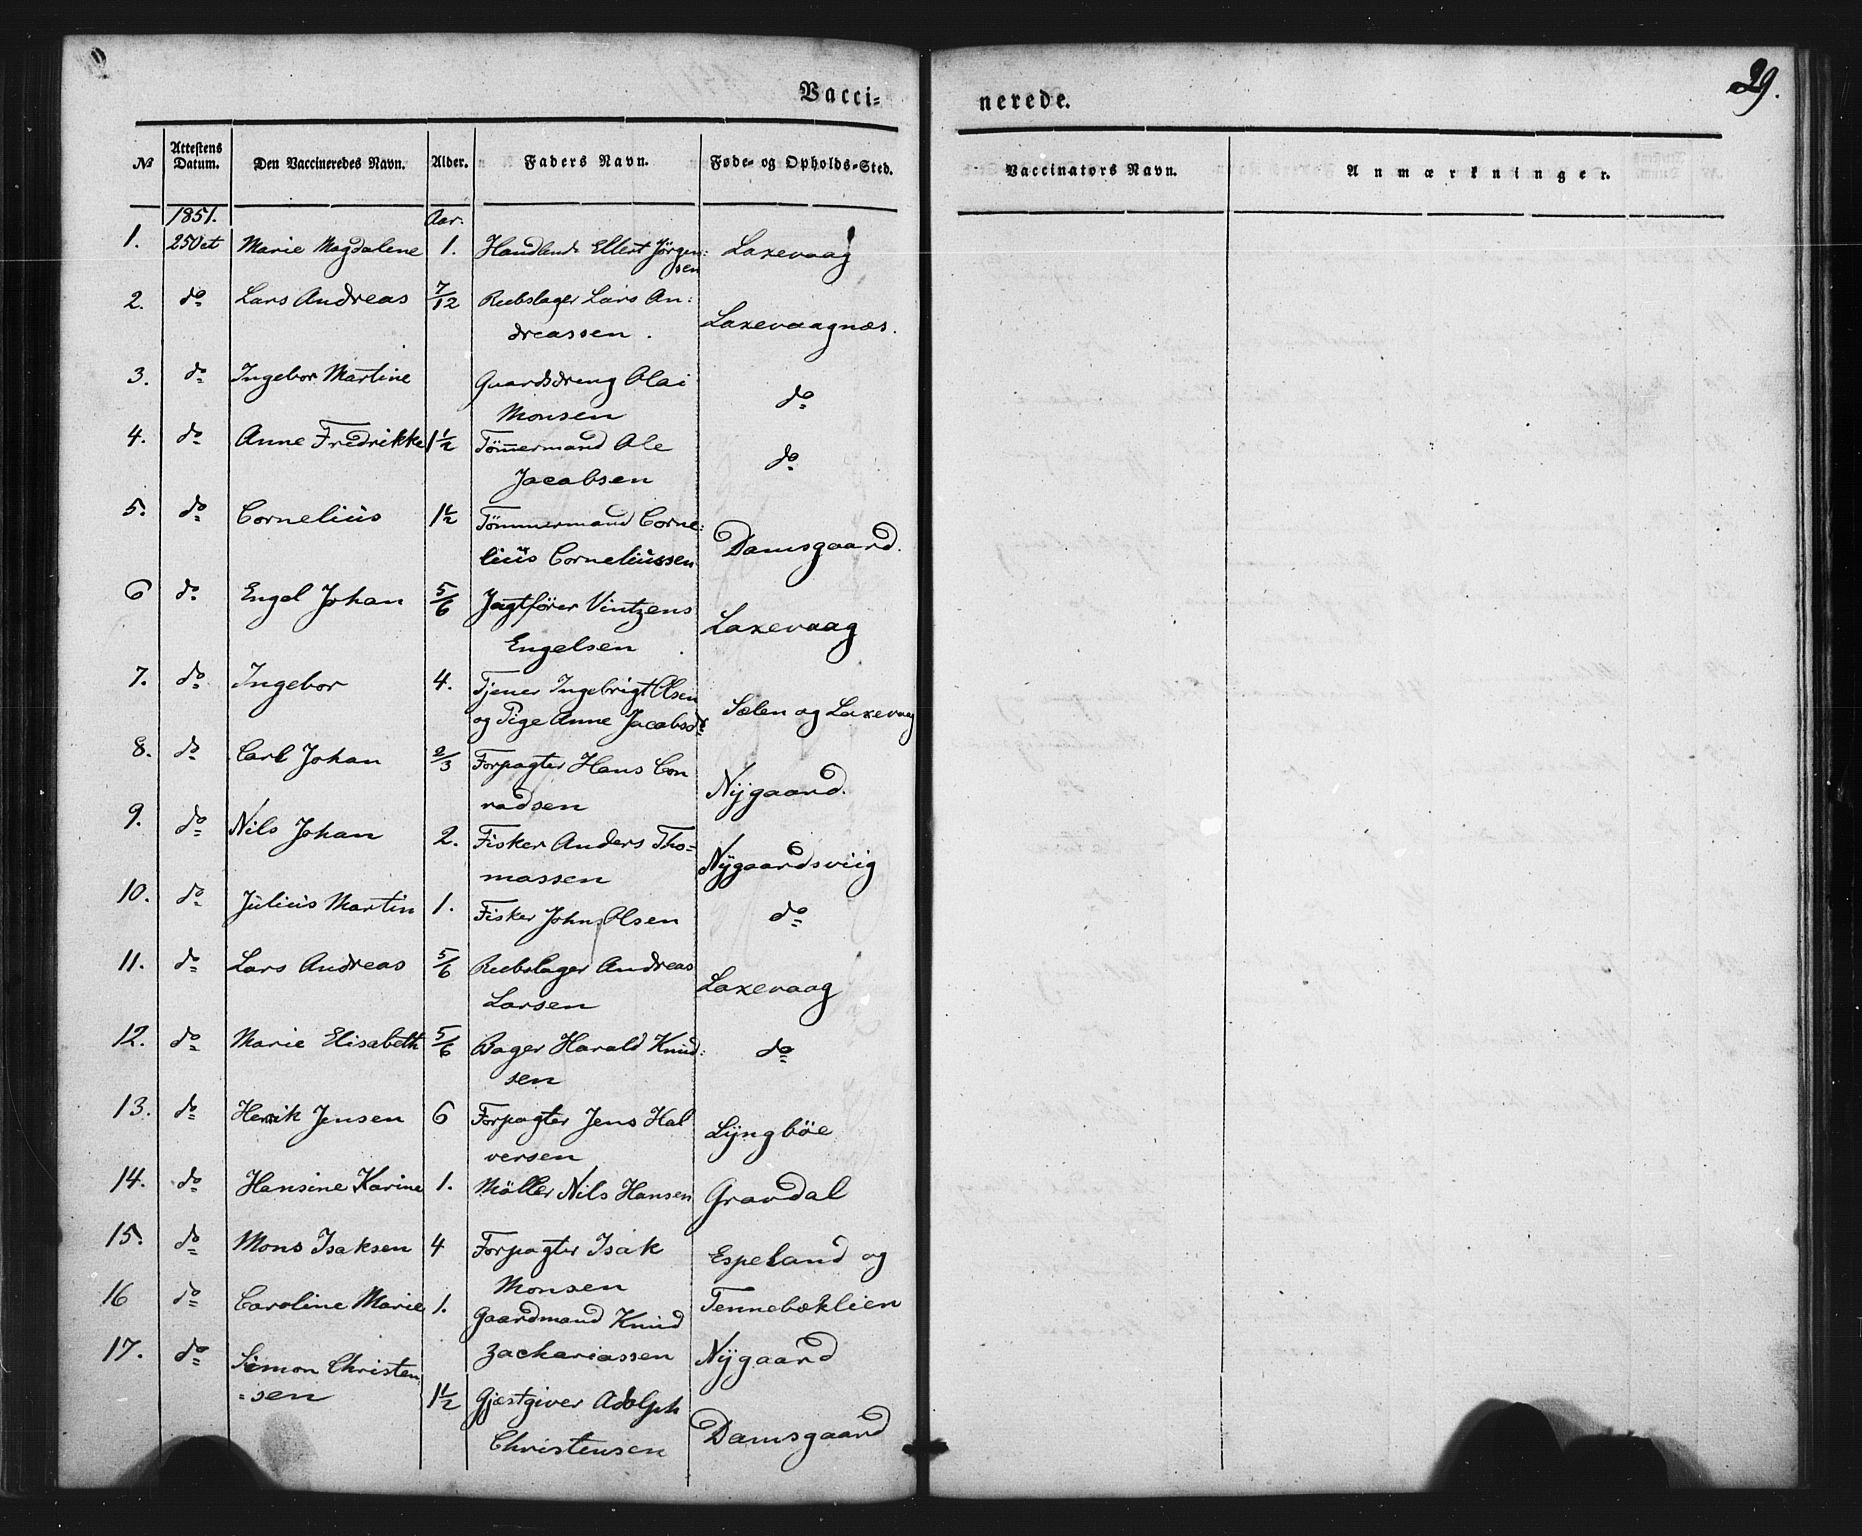 29.
Vacci- nerede.
№ Attestens Datum. Den Vaccineredes Navn. Alder. Faders Navn. Føde- og Opholds-Sted. Vaccinators Navn. Anmærkninger.
1851. Aar.
1. 25 Oct Marie Magdalene 1. Handlende Ellert Jörgen: Laxevaag
sen
2. do Lars Andreas 7/12 Rebslager Lars An:
dreassen. Laxevaagnæs.
3. do Ingebor Martine Guardsdreng Olai
Monsen do
4. do Anne Fredrikke 1½ Tömermand Ole
Jacobsen do
5. do Cornelius 1½ Tömmermand Corne:
lius Corneliussen Damsgaard.
6 do Engel Johan 5/6 Jagtförer Vintzens
Engelsen Laxevaag
7. do Ingebor 4. Tjener Ingebrigt Olsen
og Pige Anne Jacobsdr Sælen og Laxevaag
8. do Carl Johan 2/3 Forpagter Hans Con
radsen Nÿgaard.
9. do Nils Johan 2. Fisker Anders Tho=
massen Nÿgaardsviig
10. do Julius Martin 1. Fisker John Olsen do
11. do Lars Andreas 5/6 Rebslager Andreas
Larsen Laxevaag
12. do Marie Elisabeth 5/6 Bager Harald Knud:
sen do
13. do Henrik Jensen 6 Forpagter Jens Hal
versen Lÿngböe
14. do Hansine Karine 1. Möller Nils Hansen Gravdal
15. do Mons Isaksen 4 Forpagter Isak
Monsen Espeland og
Tennebæklien
16 do Caroline Marie 1. Gaardmand Knud
Zachariassen Nÿgaard
17. do Simon Christen:
=sen 1½ Gjæstgiver Adolph
Christensen Damsgaard